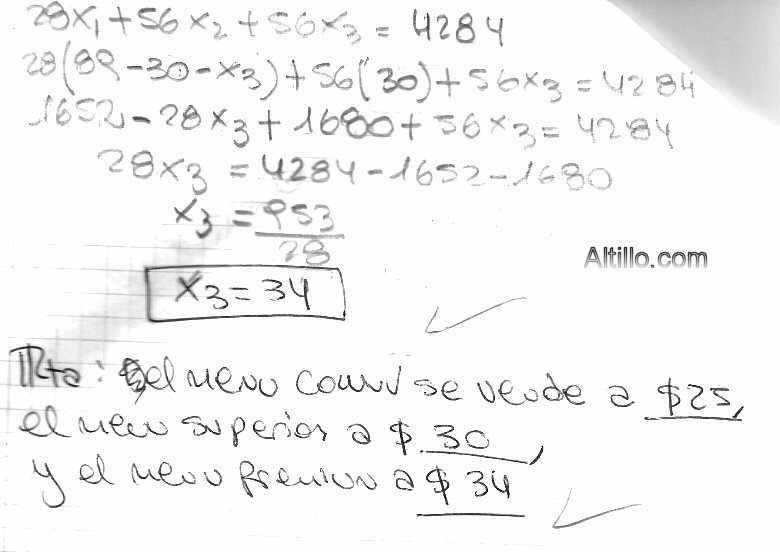 28x₁ + 56x₂ + 56x₃ = 4284
28(89 - 30 - x₃) + 56(30) + 56x₃ = 4284
1652 - 28x₃ + 1680 + 56x₃ = 4284
28x₃ = 4284 - 1652 - 1680
x₃ = 953
28
Altillo.com
x₃ = 34
Rta: el menu comun se vende a $25,
el menu superior a $30,
y el menu premium a $34